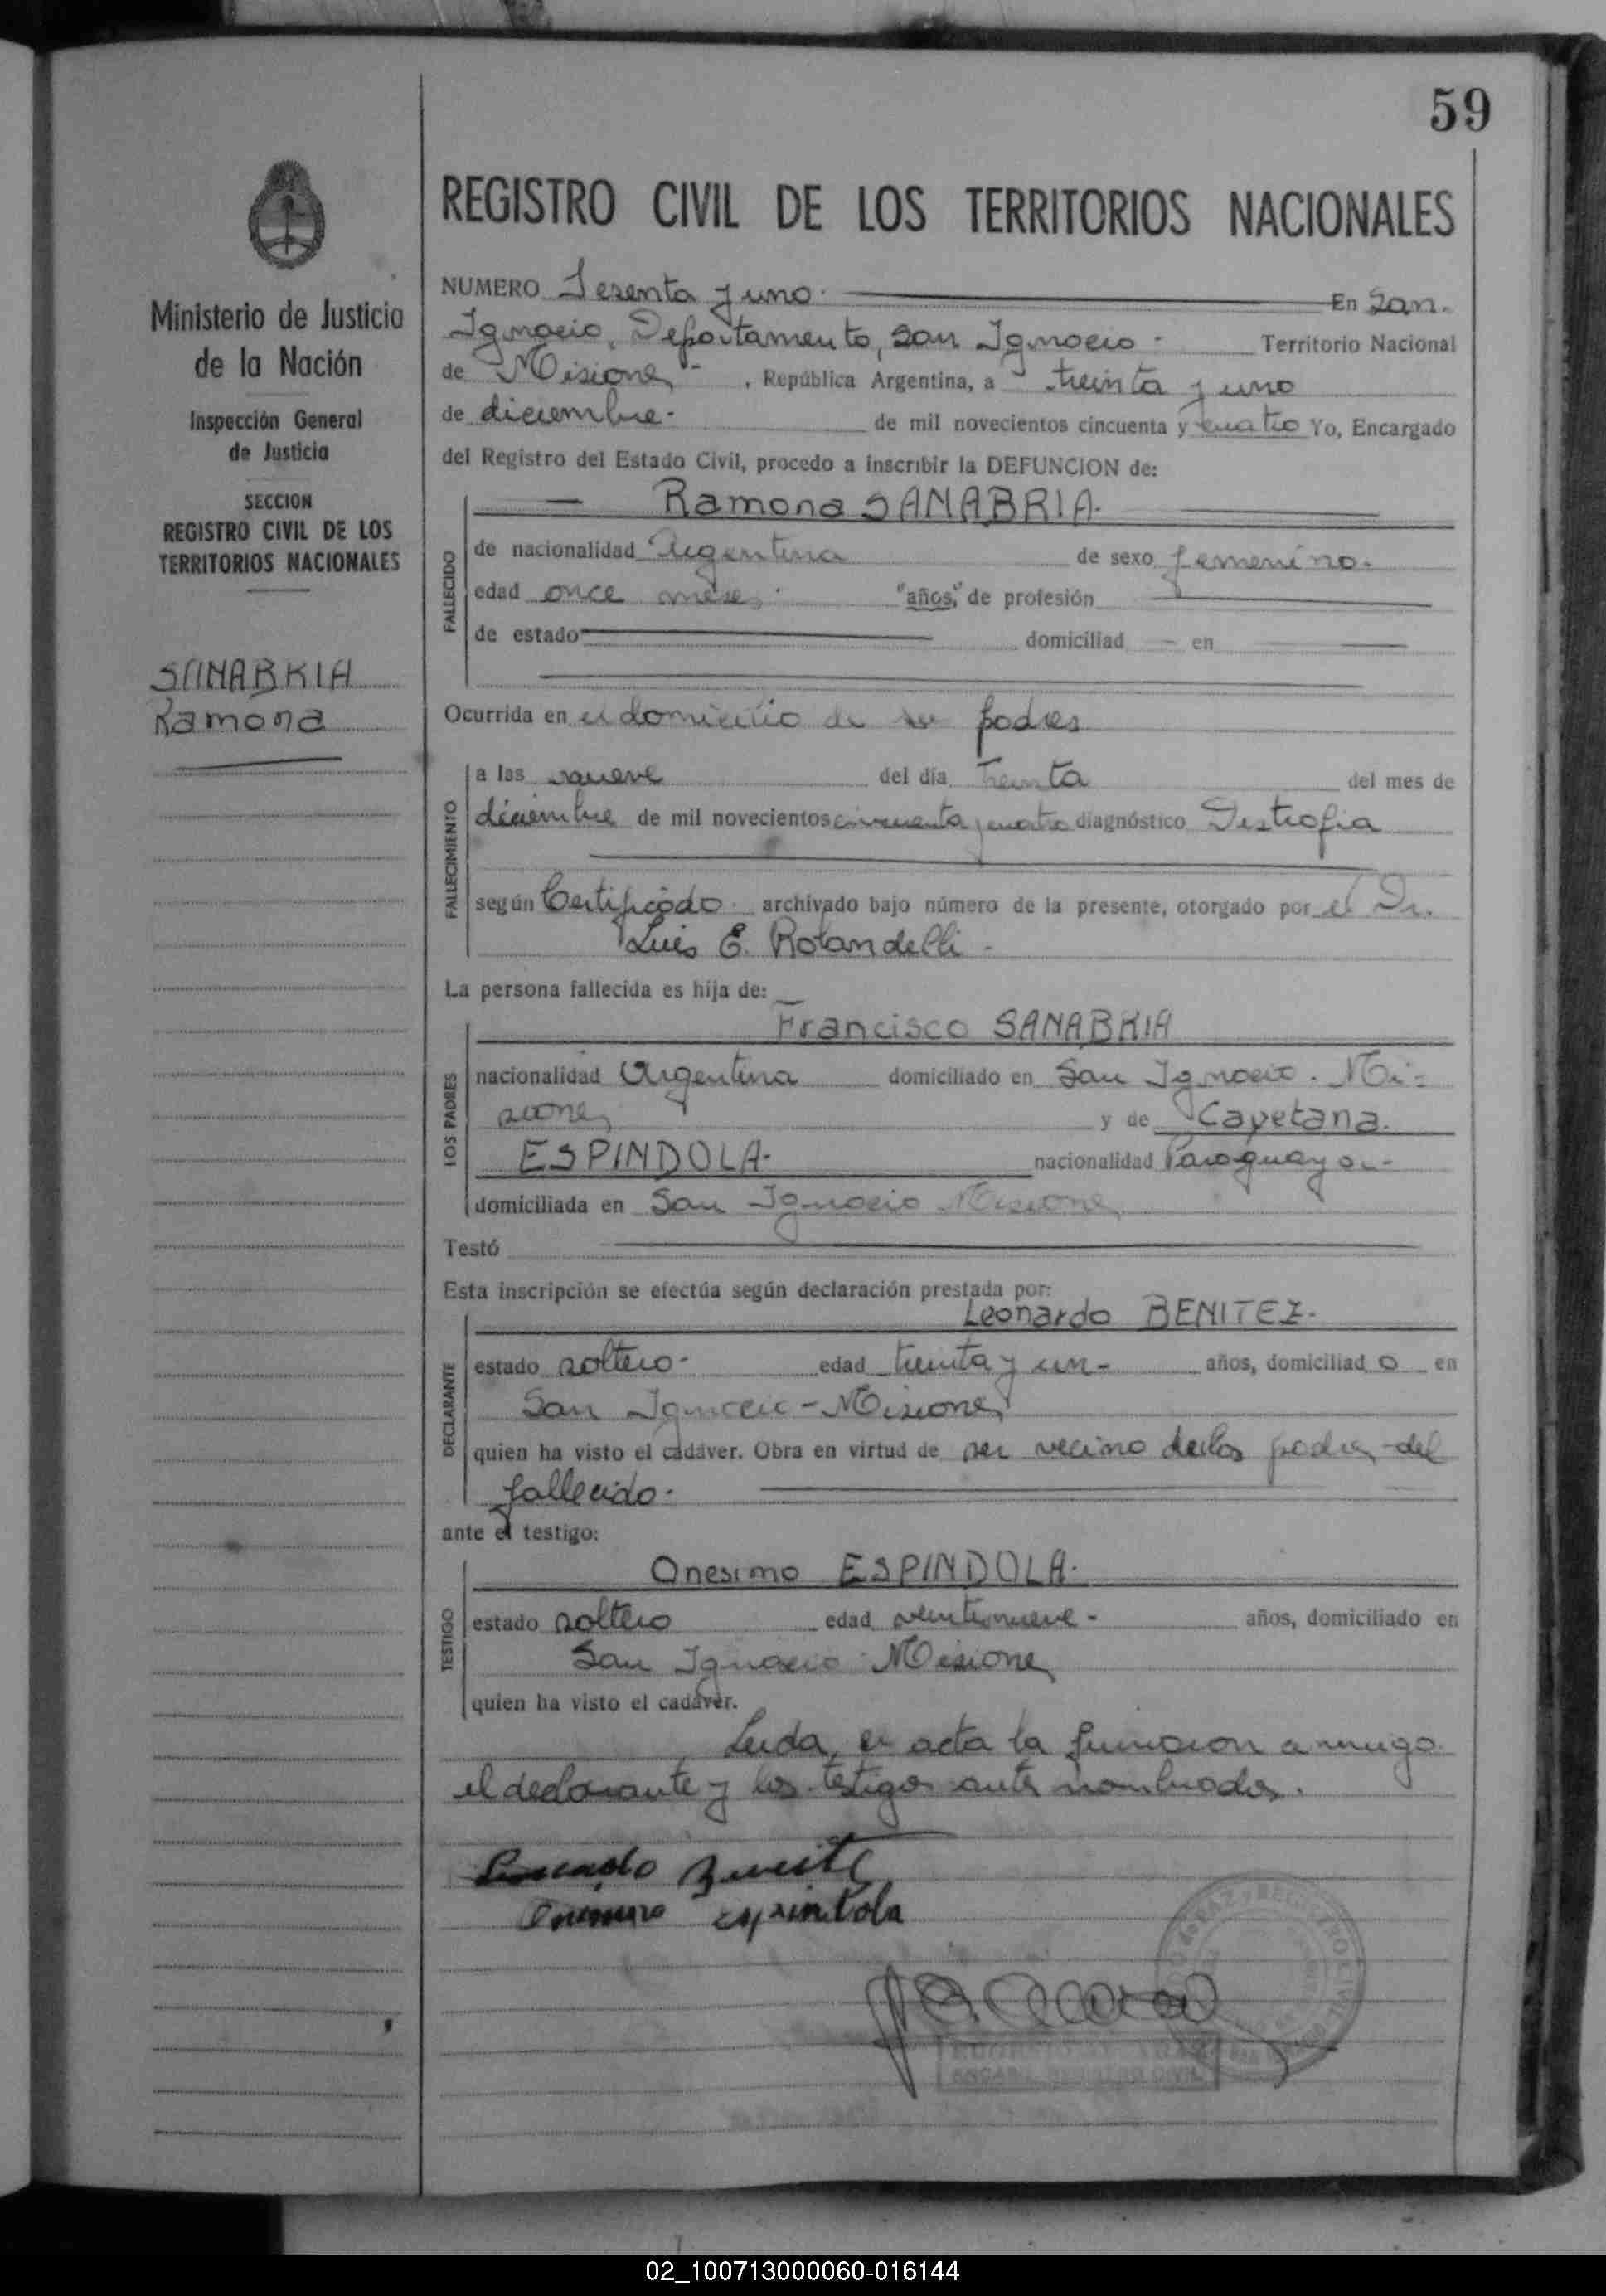 59
REGISTRO CIVIL DE LOS TERRITORIOS NACIONALES
Ministerio de Justicia
de la Nación
Inspección General
de Justicia
SECCION
REGISTRO CIVIL DE LOS
TERRITORIOS NACIONALES
SANABRIA
Ramona
NUMERO Sesenta y uno. En San.
Ignacio, Departamento, San Ignacio - Territorio Nacional
de Misiones - , República Argentina, a treinta y uno
de diciembre - de mil novecientos cincuenta y cuatro Yo, Encargado
del Registro del Estado Civil, procedo a inscribir la DEFUNCION de:
Ramona SANABRIA.
FALLECIDO
de nacionalidad Argentina de sexo femenino.
edad once meses "años," de profesión
de estado domiciliad en
Ocurrida en el domicilio de su padres
FALLECIMIENTO
a las nueve del día treinta del mes de
diciembre de mil novecientos cincuenta y cuatro diagnóstico Distrofia
según Certificado archivado bajo número de la presente, otorgado por el Dr.
Luis E. Rolandelli -
La persona fallecida es hija de:
LOS PADRES
Francisco SANABRIA
nacionalidad Argentina domiciliado en San Ignacio. Mi-
siones y de Cayetana.
ESPINDOLA. nacionalidad Paraguaya.-
domiciliada en San Ignacio Misiones
Testó
Esta inscripción se efectúa según declaración prestada por:
DECLARANTE
Leonardo BENITEZ.
estado soltero- edad treinta y un- años, domiciliad o en
San Ignacio - Misiones
quien ha visto el cadáver. Obra en virtud de ser vecino de los padres del
fallecido.
ante el testigo:
TESTIGO
Onesimo ESPINDOLA.
estado soltero edad veintinueve - años, domiciliado en
San Ignacio Misiones
quien ha visto el cadáver.
Leida, el acta la firmaron conmigo
el declarante y los testigos antes nombrados.
Leonardo Benitez
Onesimo Espindola
02_100713000060-016144